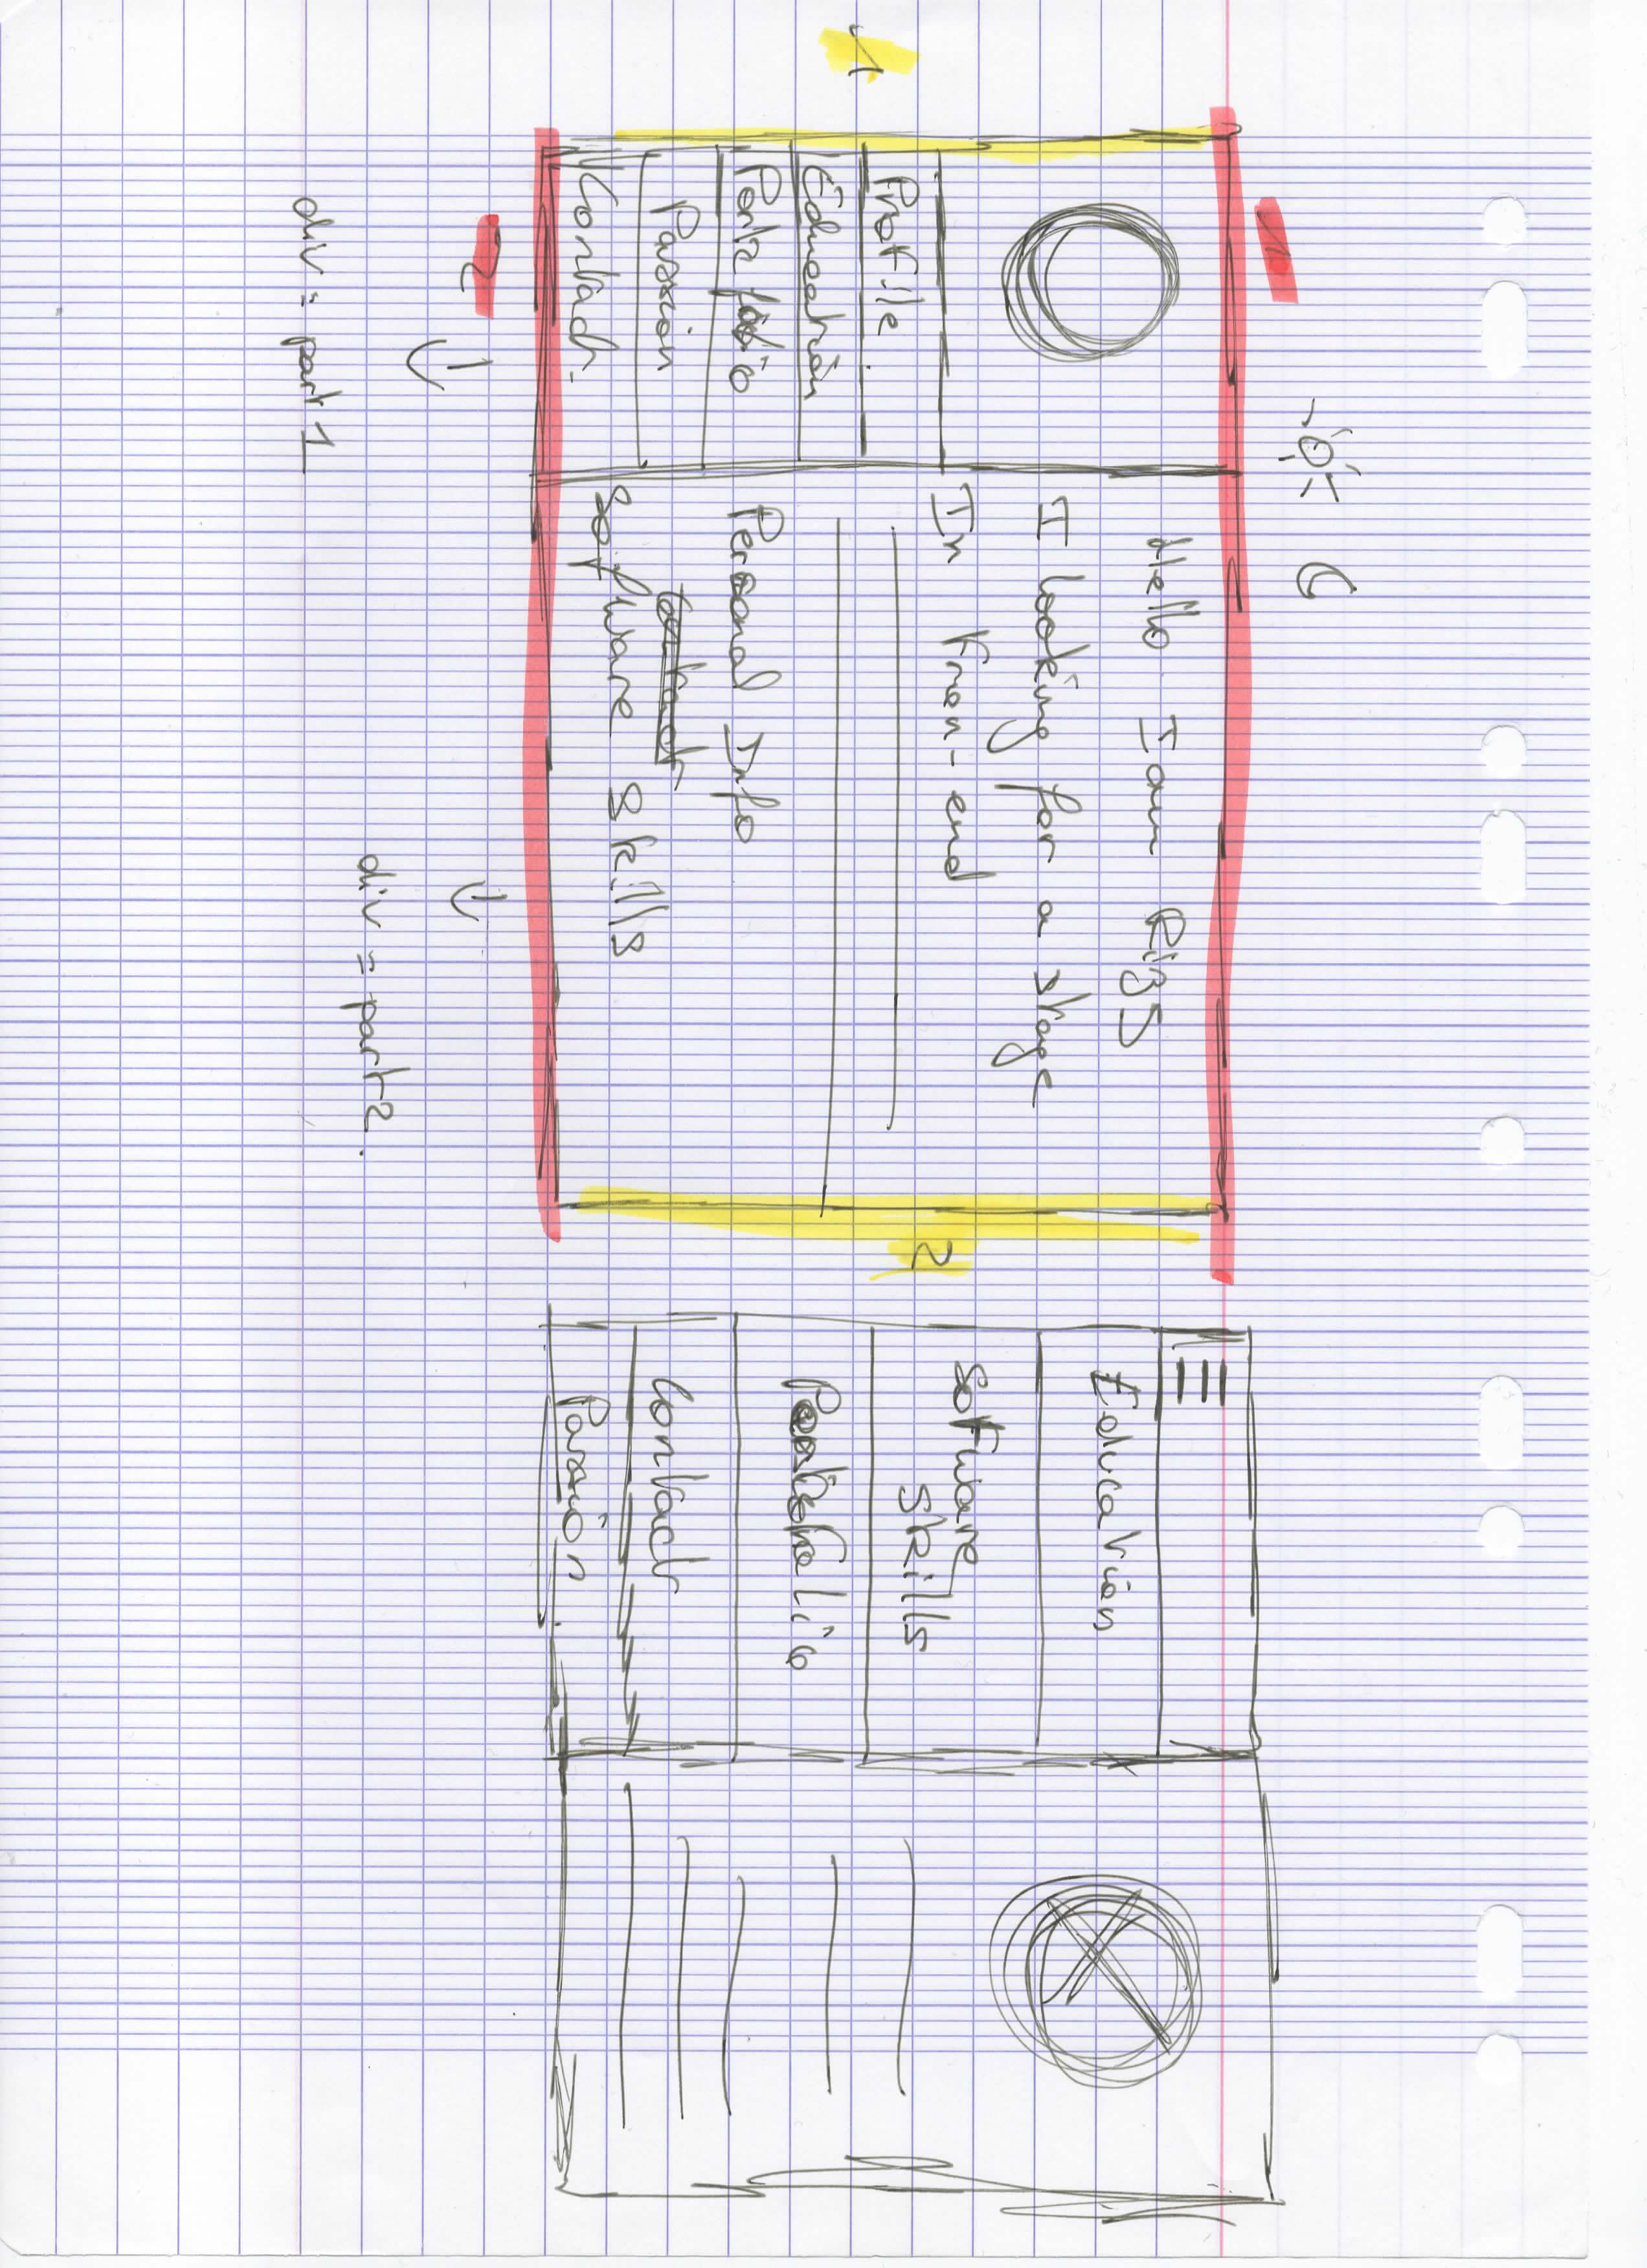 1
1
Profile
Education
Passion
Contact
Hello I am Rizg
I looking for a stage
In Fron-end
Personal Info
Contact
Software Skills
2
2
div = part 1
div = part 2.
Education
Software
Skills
Contact
Passion